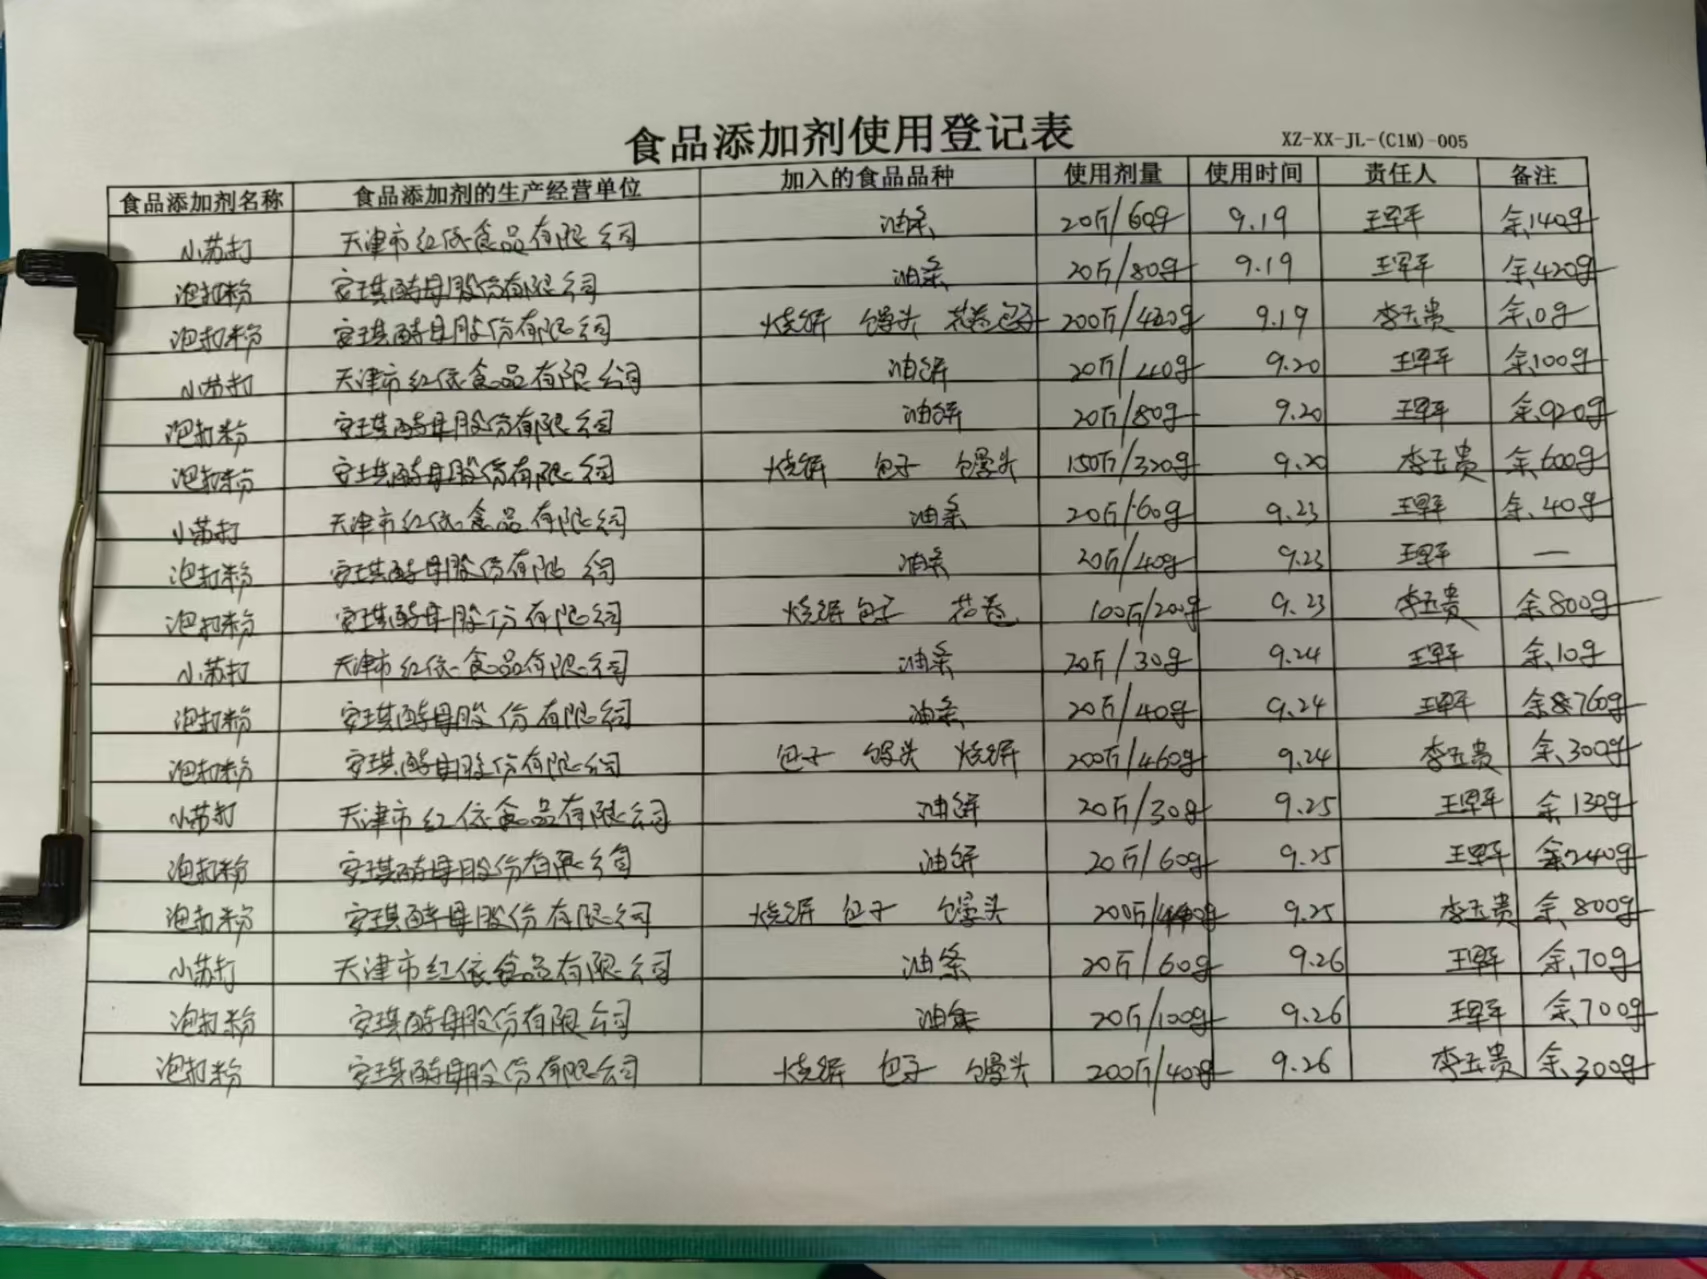 食品添加剂使用登记表
XZ-XX-JL-(C1M)-005
食品添加剂名称 食品添加剂的生产经营单位 加入的食品品种 使用剂量 使用时间 责任人 备注
小苏打 天津市红依食品有限公司 油条 20斤/60g 9.19 王军平 余140g
泡打粉 安琪酵母股份有限公司 油条 20斤/80g 9.19 王军平 余420g
泡打粉 安琪酵母股份有限公司 烧饼 馒头 花卷 包子 200斤/420g 9.19 李玉贵 余0g
小苏打 天津市红依食品有限公司 油饼 20斤/40g 9.20 王军平 余100g
泡打粉 安琪酵母股份有限公司 油饼 20斤/80g 9.20 王军平 余920g
泡打粉 安琪酵母股份有限公司 烧饼 包子 馒头 150斤/320g 9.20 李玉贵 余600g
小苏打 天津市红依食品有限公司 油条 20斤/60g 9.23 王军平 余40g
泡打粉 安琪酵母股份有限公司 油条 20斤/40g 9.23 王军平 —
泡打粉 安琪酵母股份有限公司 烧饼 包子 花卷 100斤/200g 9.23 李玉贵 余800g
小苏打 天津市红依食品有限公司 油条 20斤/30g 9.24 王军平 余10g
泡打粉 安琪酵母股份有限公司 油条 20斤/40g 9.24 王军平 余760g
泡打粉 安琪酵母股份有限公司 包子 馒头 烧饼 200斤/460g 9.24 李玉贵 余300g
小苏打 天津市红依食品有限公司 油饼 20斤/30g 9.25 王军平 余130g
泡打粉 安琪酵母股份有限公司 油饼 20斤/60g 9.25 王军平 余240g
泡打粉 安琪酵母股份有限公司 烧饼 包子 馒头 9.25 李玉贵 余800g
小苏打 天津市红依食品有限公司 油条 20斤/60g 9.26 王军平 余70g
泡打粉 安琪酵母股份有限公司 油条 20斤/100g 9.26 王军平 余700g
泡打粉 安琪酵母股份有限公司 烧饼 包子 馒头 200斤/400g 9.26 李玉贵 余300g